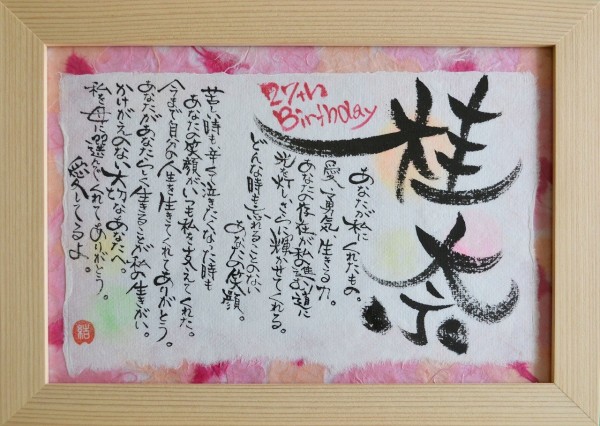 桂奈
27th
Birthday
あなたが私にくれたもの。
愛、勇気、生きる力。
あなたの存在が私の進む道に
光を灯しさらに輝かせてくれる。
どんな時も忘れることのない
あなたの笑顔。
苦しい時も辛くて泣きたくなった時も
あなたの笑顔がいつも私を支えてくれた。
今まで自分の人生を生きてくれてありがとう。
あなたがあなたらしく生きることが私の生きがい。
かけがえのない大切なあなたへ。
私を母に選んでくれてありがとう。
愛してるよ。
結